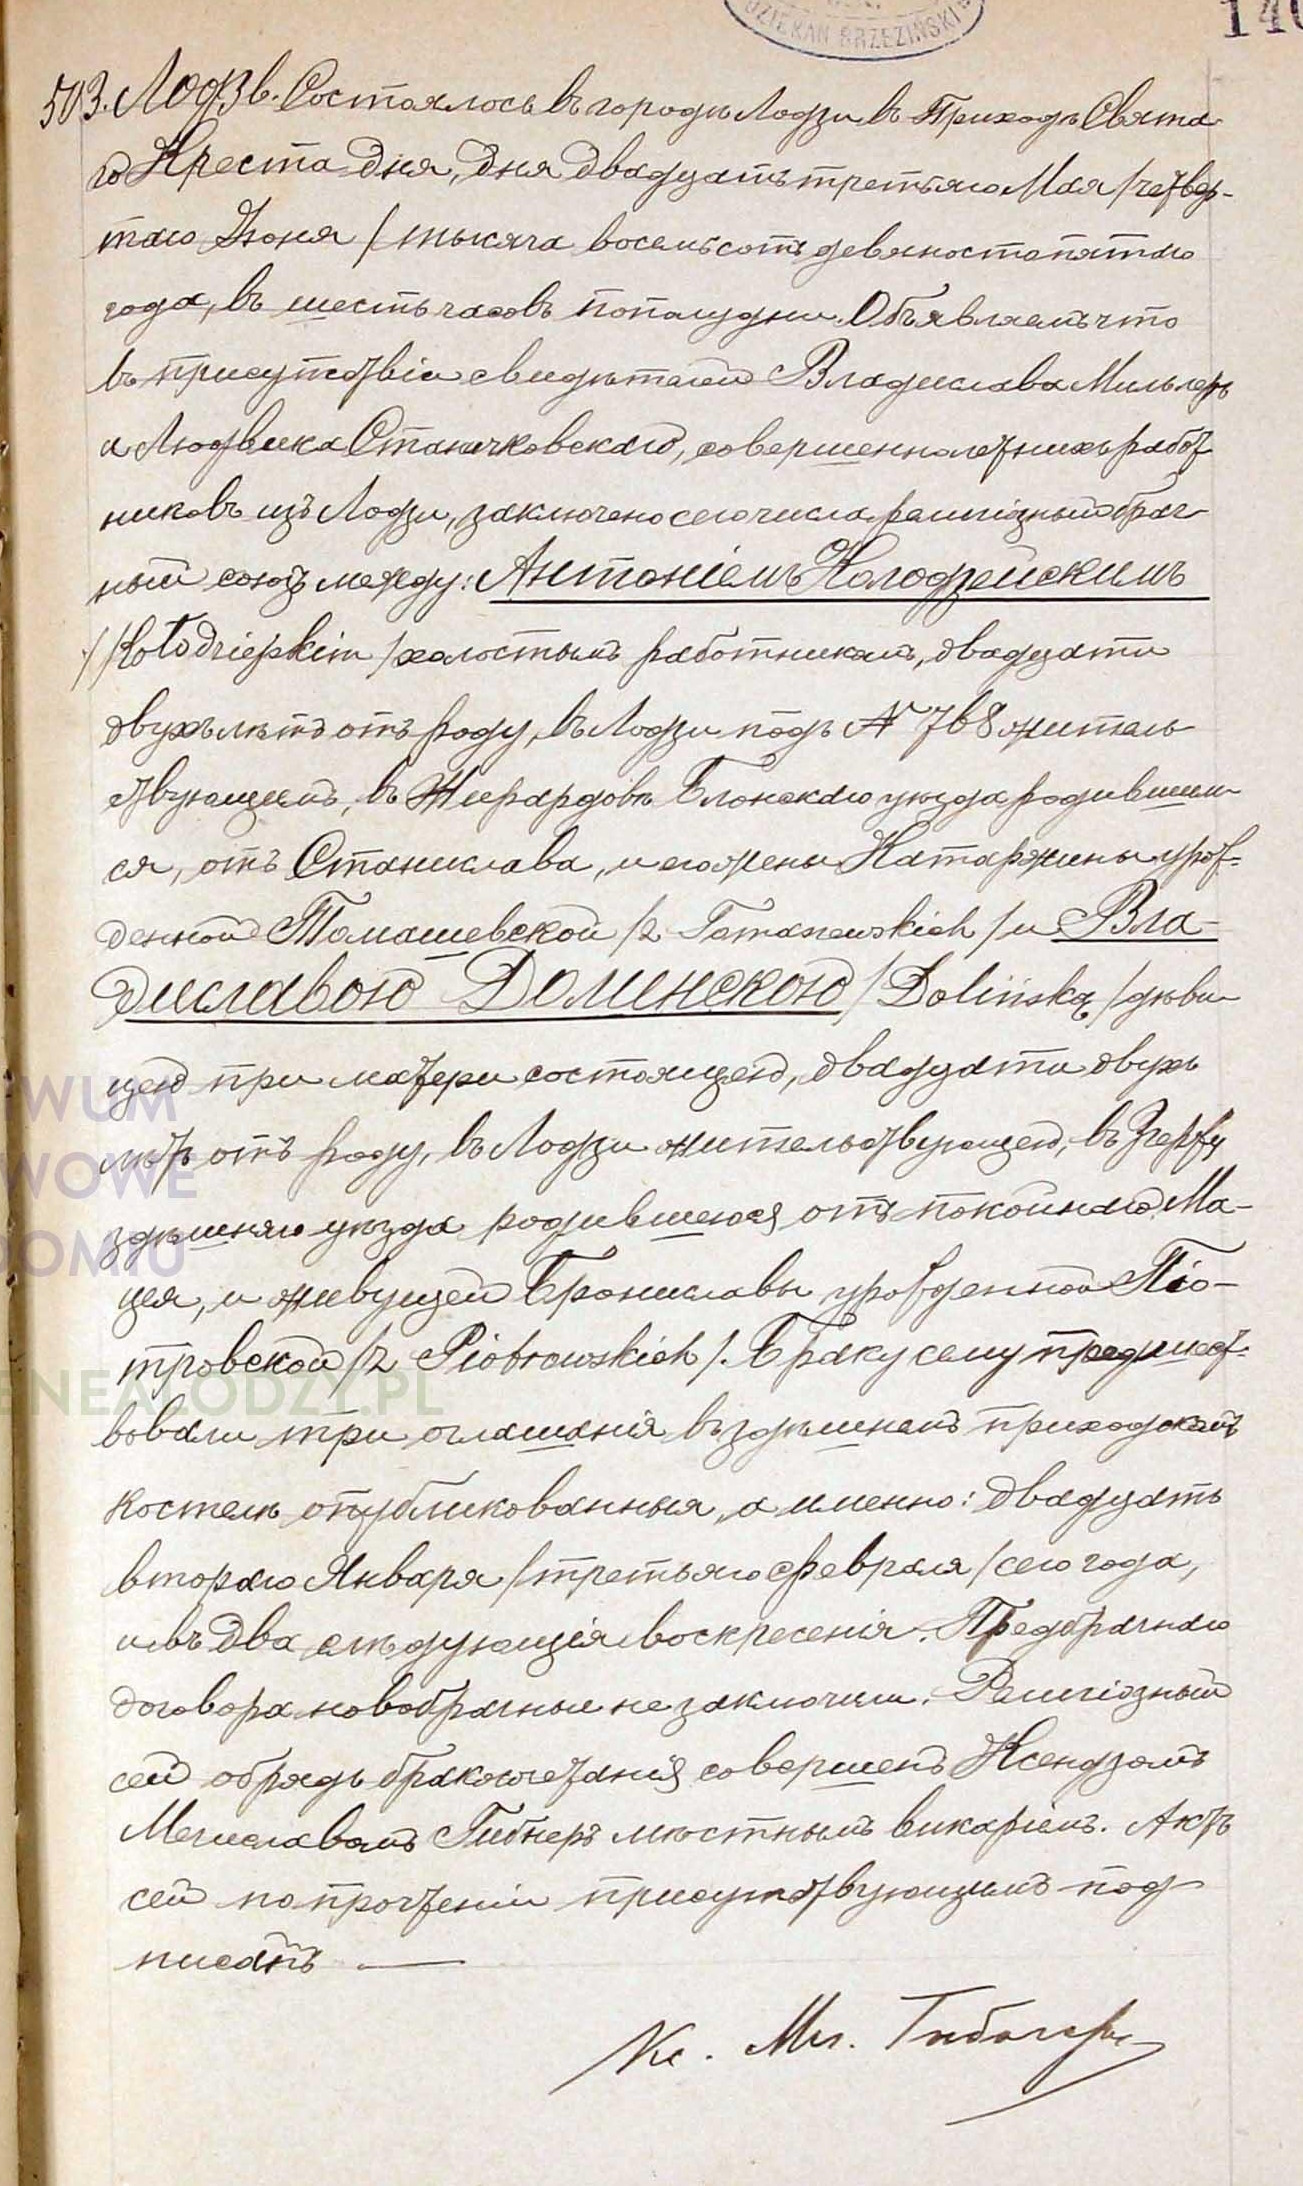 DZIEKAN BRZEZIŃSKI
140
503. Лодзь. Состоялось въ городѣ Лодзи въ Приходѣ Свята
го Креста дня, дня двадцать третьяго Мая /четвер-
таго Іюня/ тысяча восемьсотъ девяносто пятаго
года, въ шесть часовъ пополудни. Объявляемъ что
въ присутствіи свидѣтелей Владислава Мильлеръ
и Людвика Станчковскаго, совершеннолетнихъ работ
никовъ изъ Лодзи, заключено сего числа религіозный брач-
ный союзъ между: Антоніемъ Колодзейскимъ
/Kołodziejskim/ холостымъ работникомъ, двадцати
двухъ лѣтъ отъ роду, въ Лодзи подъ № 768 житель
ствующимъ, въ Жирардовѣ Блонскаго уѣзда родившим
ся, отъ Станислава, и его жены Катаржины урож-
денной Томашевской /z Tomaszewskich/ и Вла-
диславою Долинскою /Dolińską/ дѣви
цею при матери состоящею, двадцати двухъ
лѣтъ отъ роду, въ Лодзи жительствующею, въ Згержу
здѣшняго уѣзда родившеюся отъ покойнаго Ма-
цея, и живущей Брониславы урожденной Піо-
тровской /z Piotrowskich/. Браку сему предшест-
вовали три оглашенія въ здѣшнемъ приходскомъ
костелѣ опубликованныя, а именно: двадцать
втораго Января /третьяго февраля/ сего года,
и въ два слѣдующія воскресенія. Предбрачнаго
договора новобрачные не заключили. Религіозный
сей обрядъ бракосочетанія совершенъ Ксендзомъ
Мечиславомъ Гибнеръ мѣстнымъ викаріемъ. Актъ
сей по прочтеніи присутствующимъ под-
писанъ —
Кс. Меч.
WUM
WOWE
DOMIU
ENEALODZY.PL